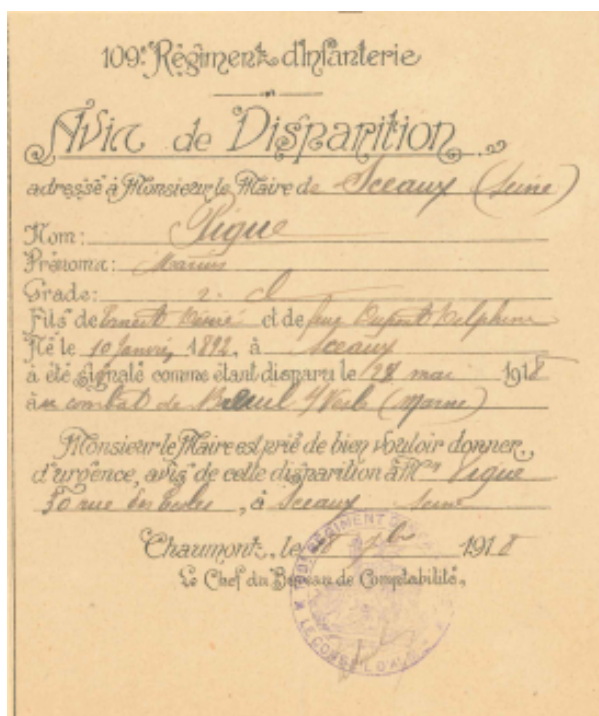 109e Régiment d'Infanterie
Avis de Disparition
adressé à Monsieur le Maire de Sceaux (Seine)
Nom:
Prénoms: Marius
Grade: 2e Cl
Fils de Ernest Désiré et de feue Dupont Delphine
Né le 10 Janvier 1892, à Sceaux
à été signalé comme étant disparu le 28 mai 1918
au combat de Breuil s/Vesle (Marne)
Monsieur le Maire est prié de bien vouloir donner
d'urgence, avis de cette disparition à Mr
50 rue des Ecoles, à Sceaux Seine
Chaumont, le 1918
Le Chef du Bureau de Comptabilité,
RÉGIMENT
LE CONSEIL D'A